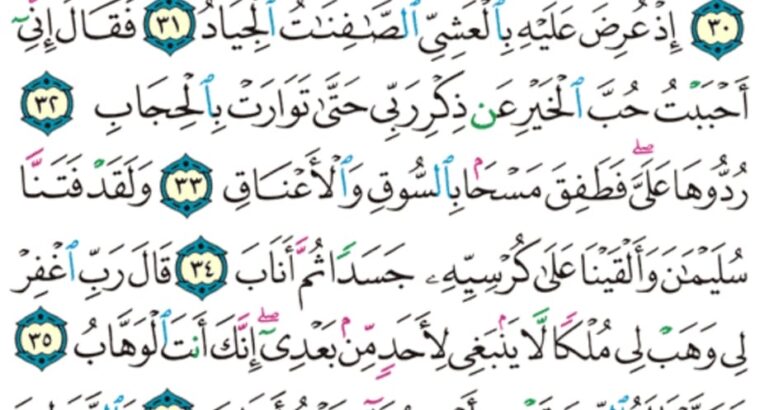 ٣٠ إِذْ عُرِضَ عَلَيْهِ بِٱلْعَشِيِّ ٱلصَّـٰفِنَـٰتُ ٱلْجِيَادُ ٣١ فَقَالَ إِنِّىٓ
أَحْبَبْتُ حُبَّ ٱلْخَيْرِ عَن ذِكْرِ رَبِّى حَتَّىٰ تَوَارَتْ بِٱلْحِجَابِ ٣٢
رُدُّوهَا عَلَىَّۖ فَطَفِقَ مَسْحَۢا بِٱلسُّوقِ وَٱلْأَعْنَاقِ ٣٣ وَلَقَدْ فَتَنَّا
سُلَيْمَـٰنَ وَأَلْقَيْنَا عَلَىٰ كُرْسِيِّهِۦ جَسَدًا ثُمَّ أَنَابَ ٣٤ قَالَ رَبِّ ٱغْفِرْ
لِى وَهَبْ لِى مُلْكًا لَّا يَنۢبَغِى لِأَحَدٍ مِّنۢ بَعْدِىٓۖ إِنَّكَ أَنتَ ٱلْوَهَّابُ ٣٥